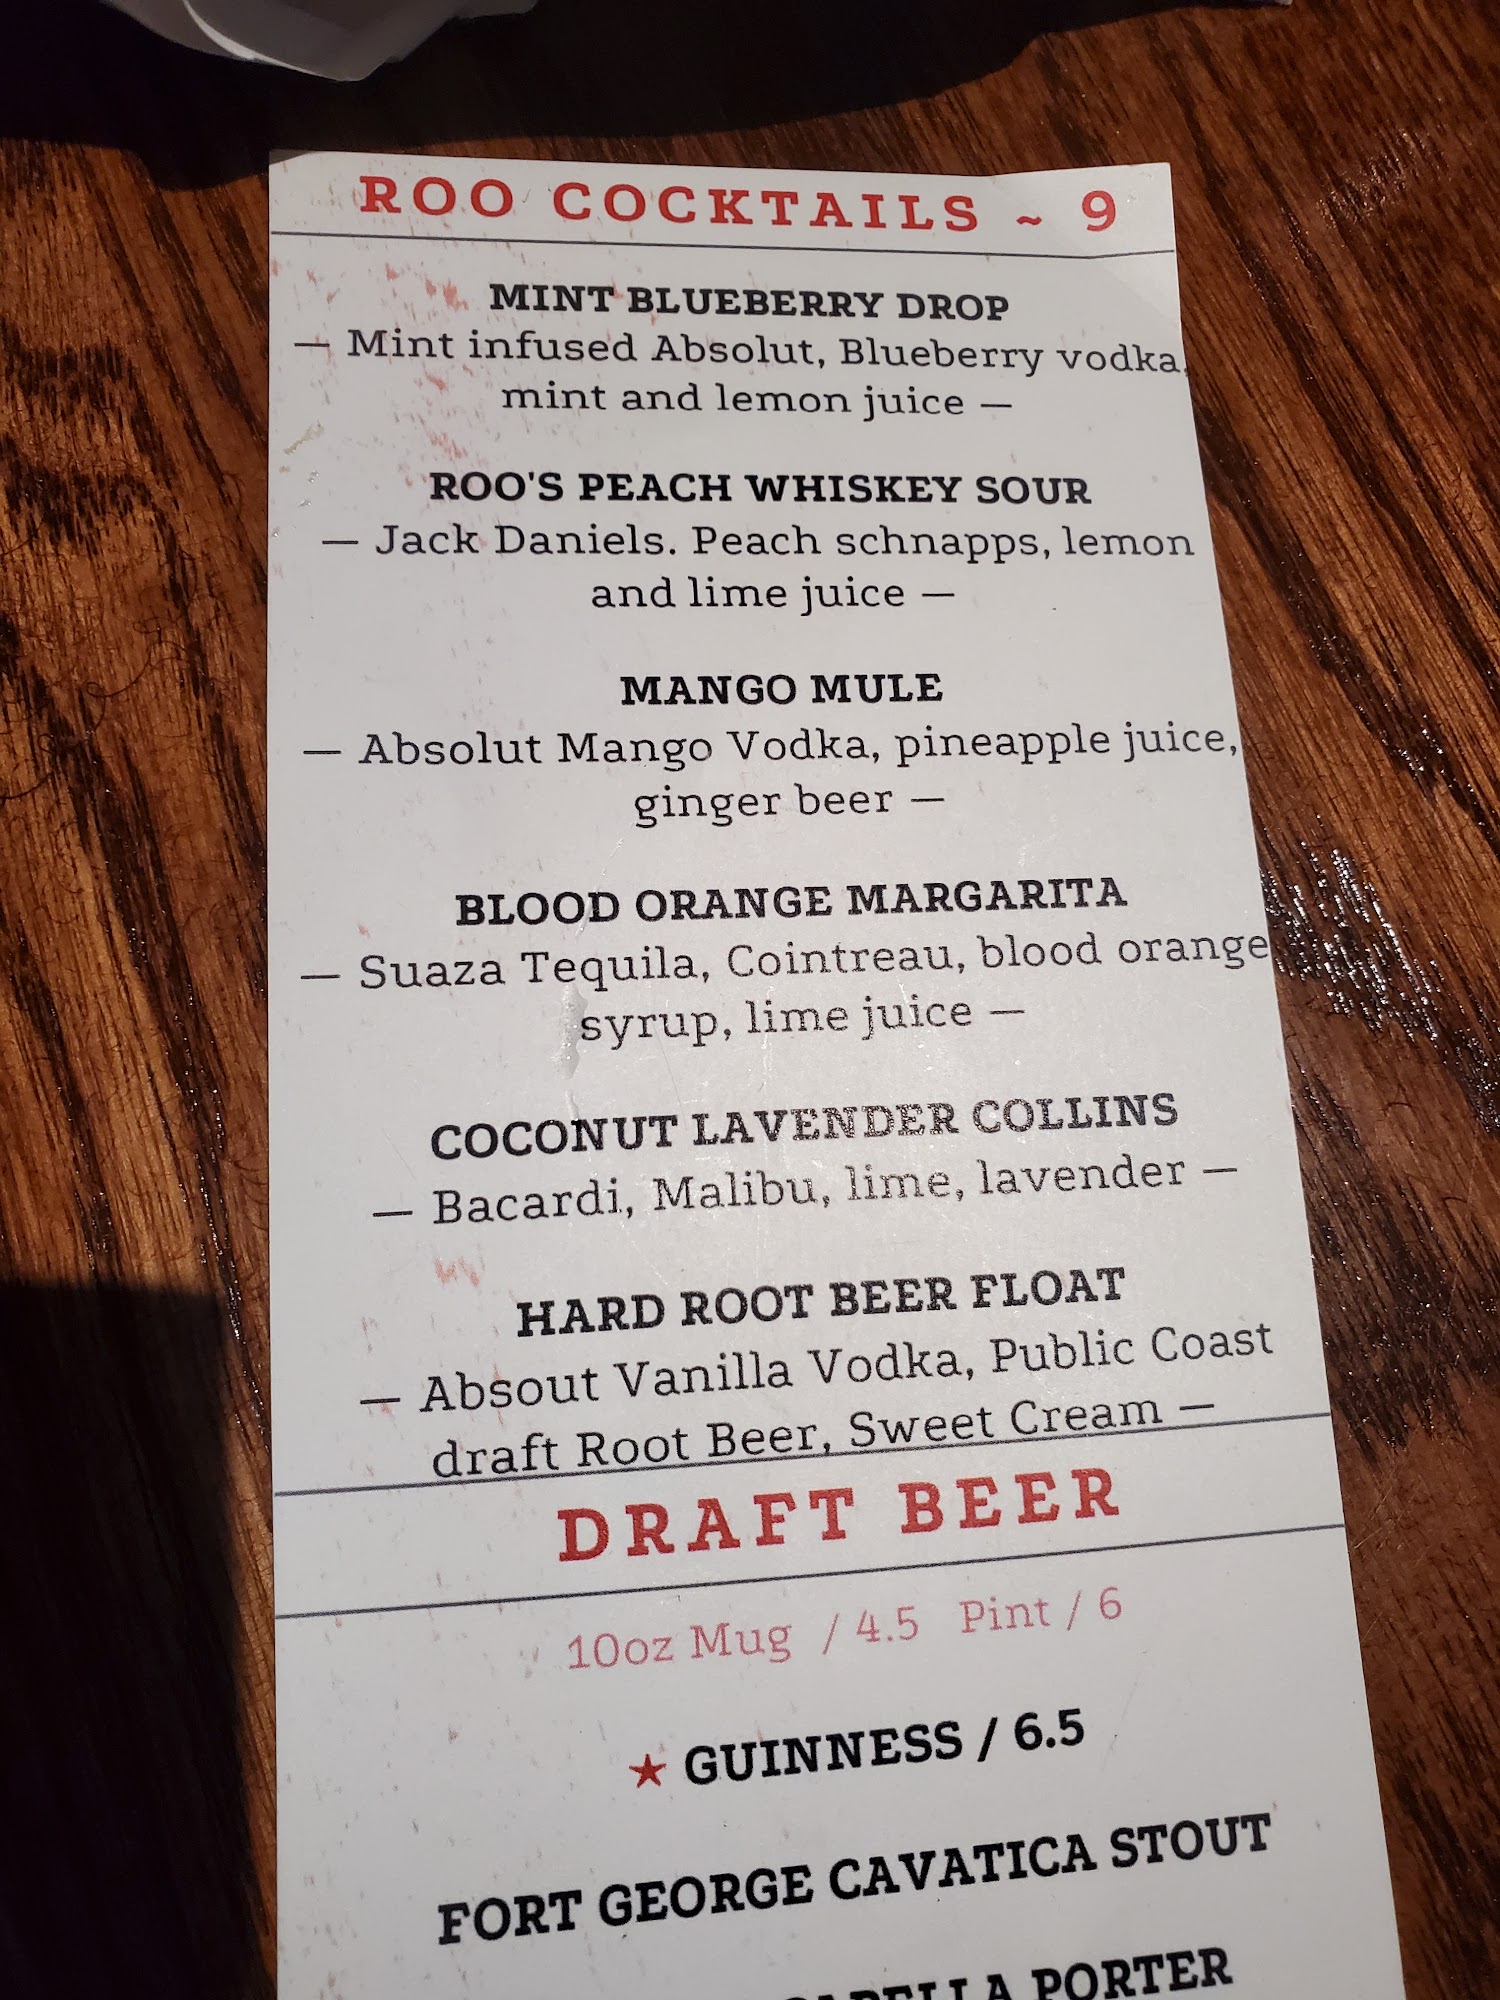 ROO COCKTAILS ~ 9
MINT BLUEBERRY DROP
— Mint infused Absolut, Blueberry vodka,
mint and lemon juice —
ROO'S PEACH WHISKEY SOUR
— Jack Daniels. Peach schnapps, lemon
and lime juice —
MANGO MULE
— Absolut Mango Vodka, pineapple juice,
ginger beer —
BLOOD ORANGE MARGARITA
— Suaza Tequila, Cointreau, blood orange
syrup, lime juice —
COCONUT LAVENDER COLLINS
— Bacardi, Malibu, lime, lavender —
HARD ROOT BEER FLOAT
— Absout Vanilla Vodka, Public Coast
draft Root Beer, Sweet Cream —
DRAFT BEER
10oz Mug / 4.5 Pint / 6
★ GUINNESS / 6.5
FORT GEORGE CAVATICA STOUT
PORTER